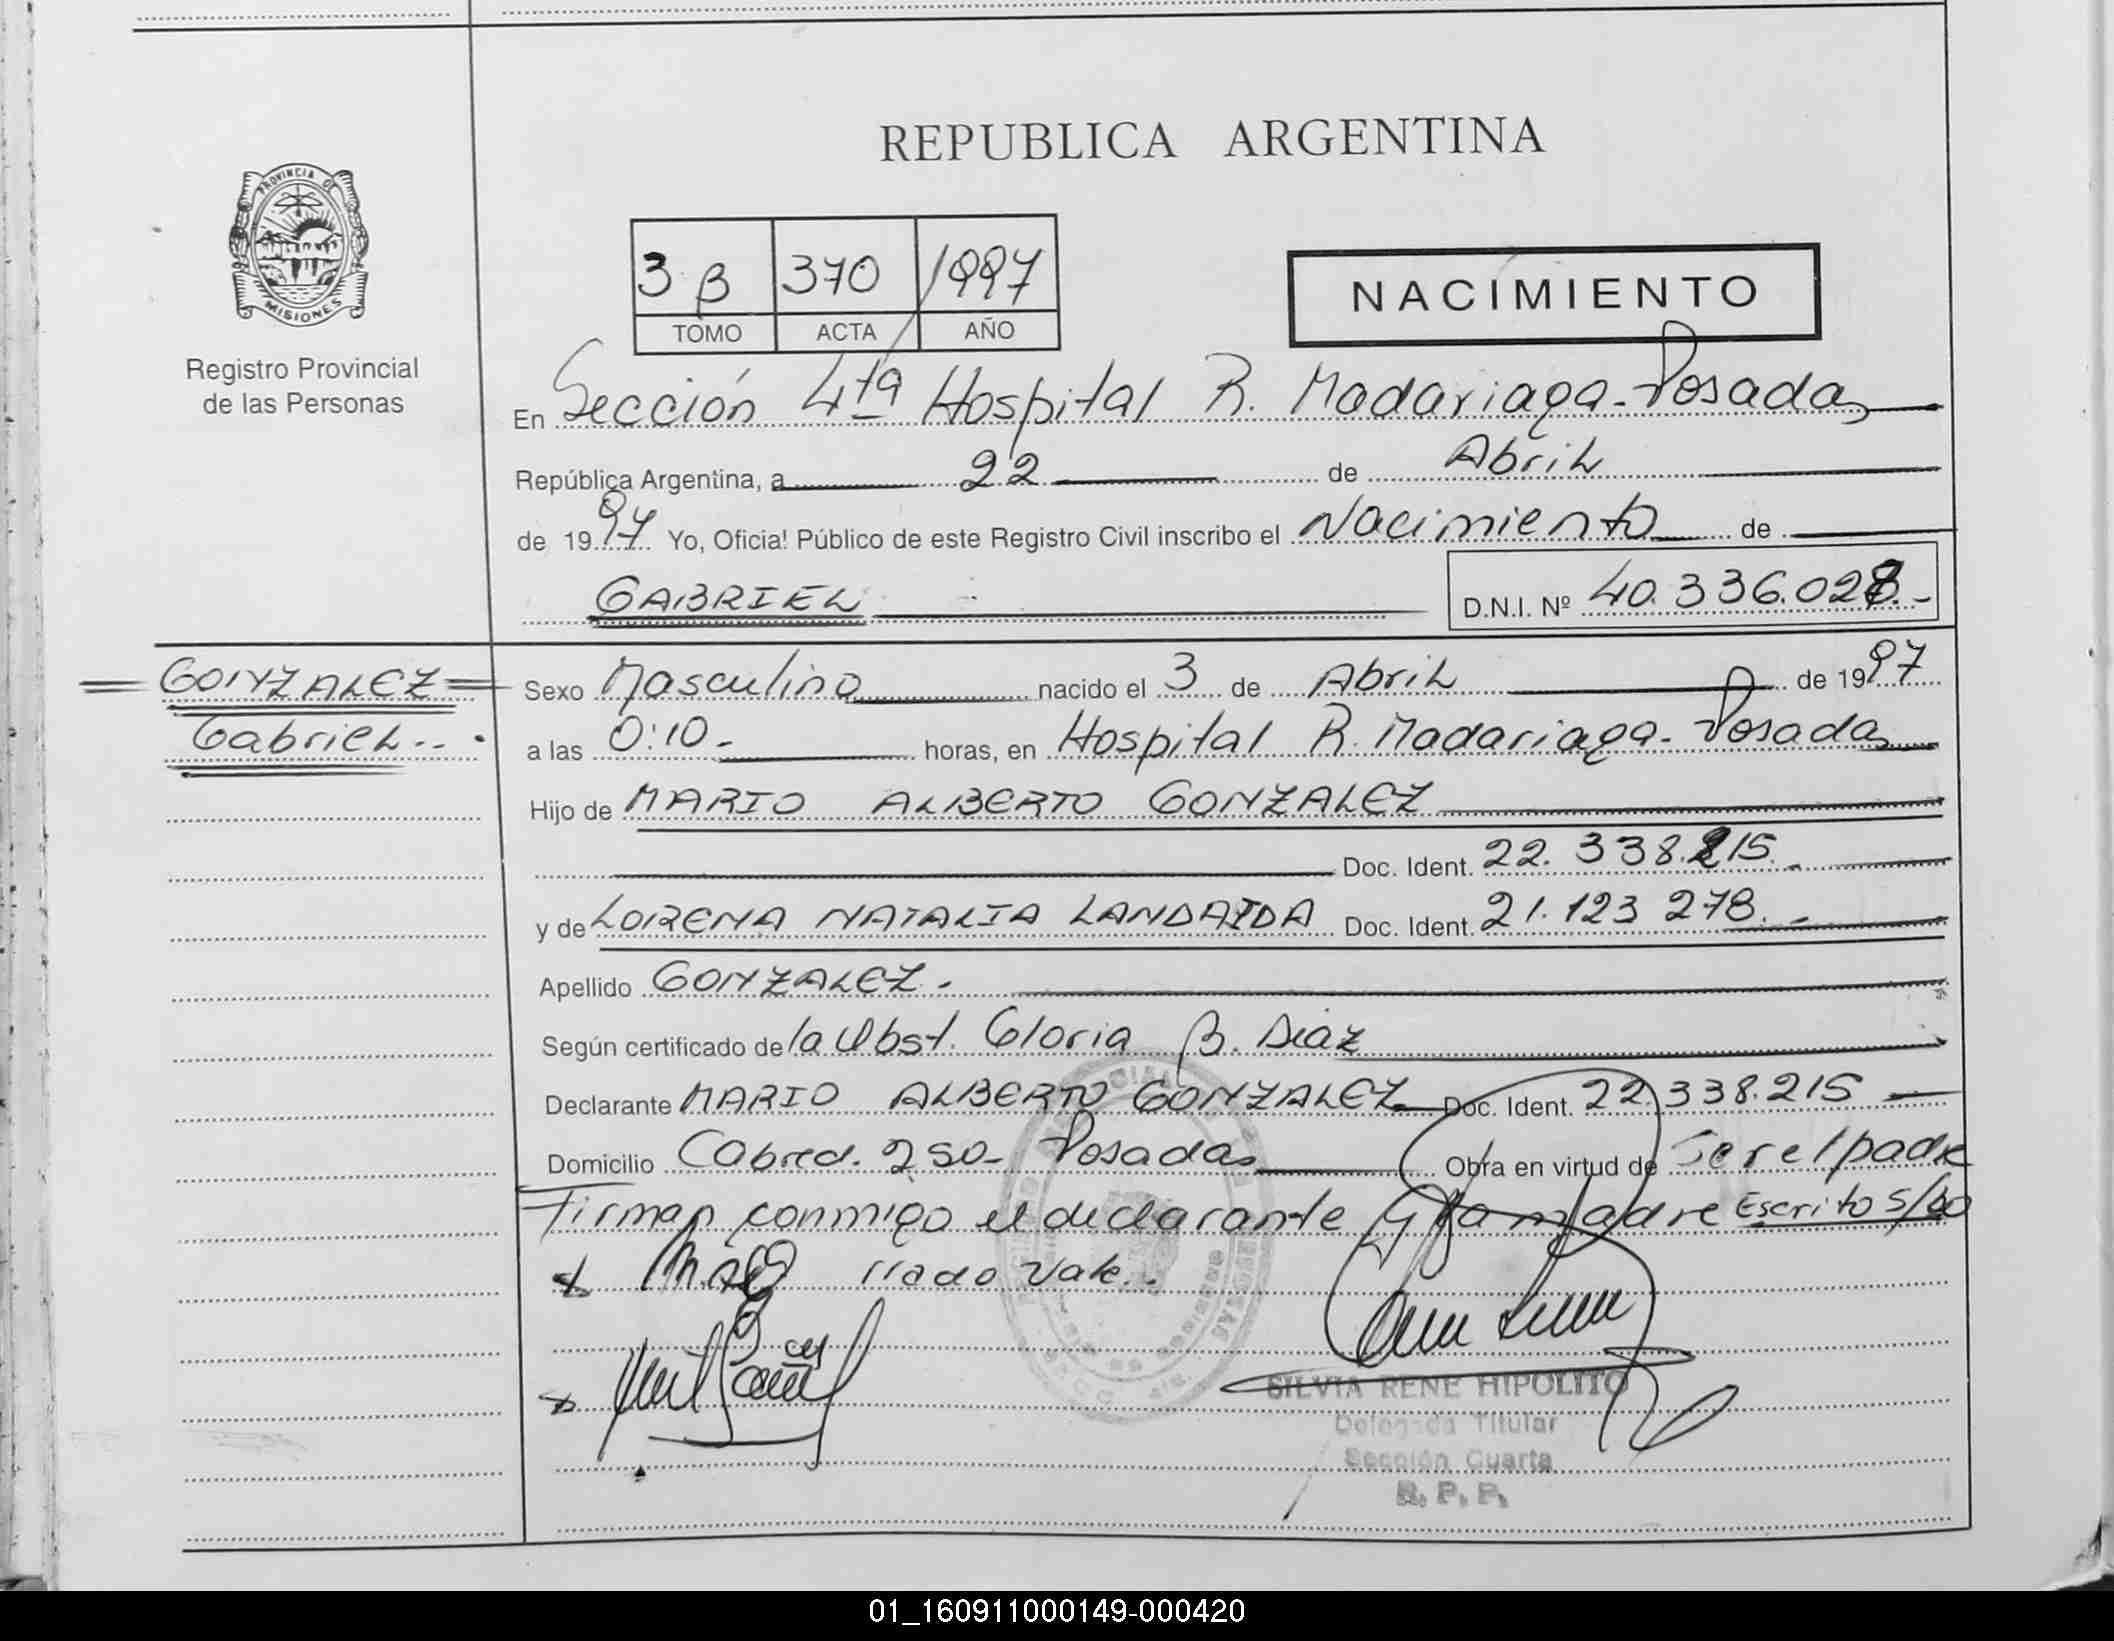 REPUBLICA ARGENTINA
PROVINCIA DE
MISIONES
Registro Provincial
de las Personas
3 B 370 1997
TOMO ACTA AÑO
NACIMIENTO
En Sección 4ta Hospital R. Madariaga - Posadas
República Argentina, a 22 de Abril
de 1997 Yo, Oficial Público de este Registro Civil inscribo el Nacimiento de
GABRIEL D.N.I. Nº 40.336.028.-
GONZALEZ
Gabriel..
Sexo Masculino nacido el 3 de Abril de 1997
a las 0:10- horas, en Hospital R. Madariaga - Posadas
Hijo de MARIO ALBERTO GONZALEZ
Doc. Ident. 22.338.215.-
y de LORENA NATALIA LANDAIDA Doc. Ident. 21.123 278.-
Apellido GONZALEZ.-
Según certificado de la Obst. Gloria B. Diaz
Declarante MARIO ALBERTO GONZALEZ Doc. Ident. 22.338.215
Domicilio Cabred. 250- Posadas Obra en virtud de Ser el padre
Firman conmigo el declarante y la madre Escrito s/bo
rrado Vale..
SILVIA RENE HIPOLITO
Delegada Titular
Sección Cuarta
R. P. P.
01_160911000149-000420